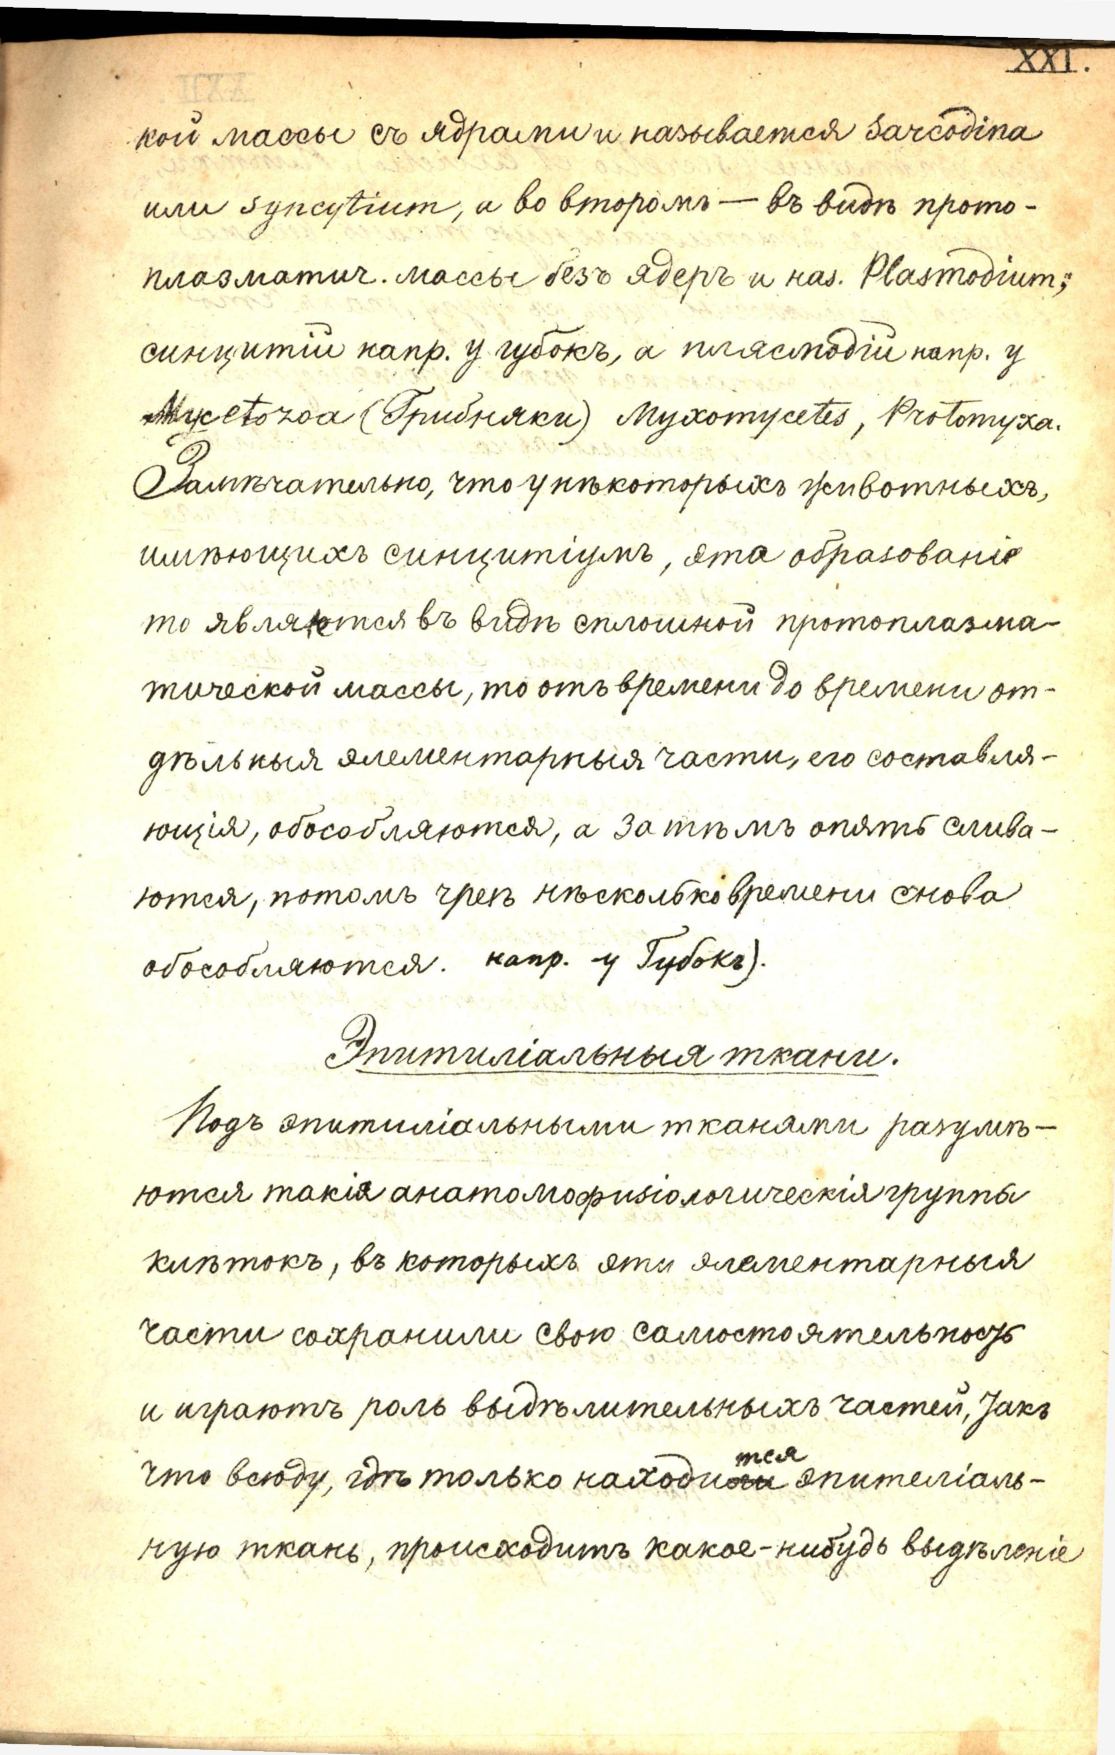 XXI.
кой массы съ ядрами и называется Sarcodina
или syncytium, а во второмъ — въ видѣ прото-
плазматич. массы безъ ядеръ и наз. Plasmodium;
синцитій напр. у губокъ, а плясмодій напр. у
Mycetozoa (Грибняки) Myxomycetes, Protomyxa.
Замѣчательно, что у нѣкоторыхъ животныхъ,
имѣющихъ синцитіумъ, эта образованіе
то являются въ видѣ сплошной протоплазма-
тической массы, то отъ времени до времени от-
дѣльныя элементарныя части, его составля-
ющія, обособляются, а затѣмъ опять слива-
ются, потомъ чрезъ нѣсколько времени снова
обособляются. напр. у Губокъ).
Эпитиліальныя ткани.
Подъ эпитиліальными тканями разумѣ-
ются такія анатомофизіологическія группы
клѣтокъ, въ которыхъ эти элементарныя
части сохранили свою самостоятельность
и играютъ роль выдѣлительныхъ частей, Такъ
что всюду, гдѣ только находится эпителіаль-
ную ткань, происходитъ какое-нибудь выдѣленіе